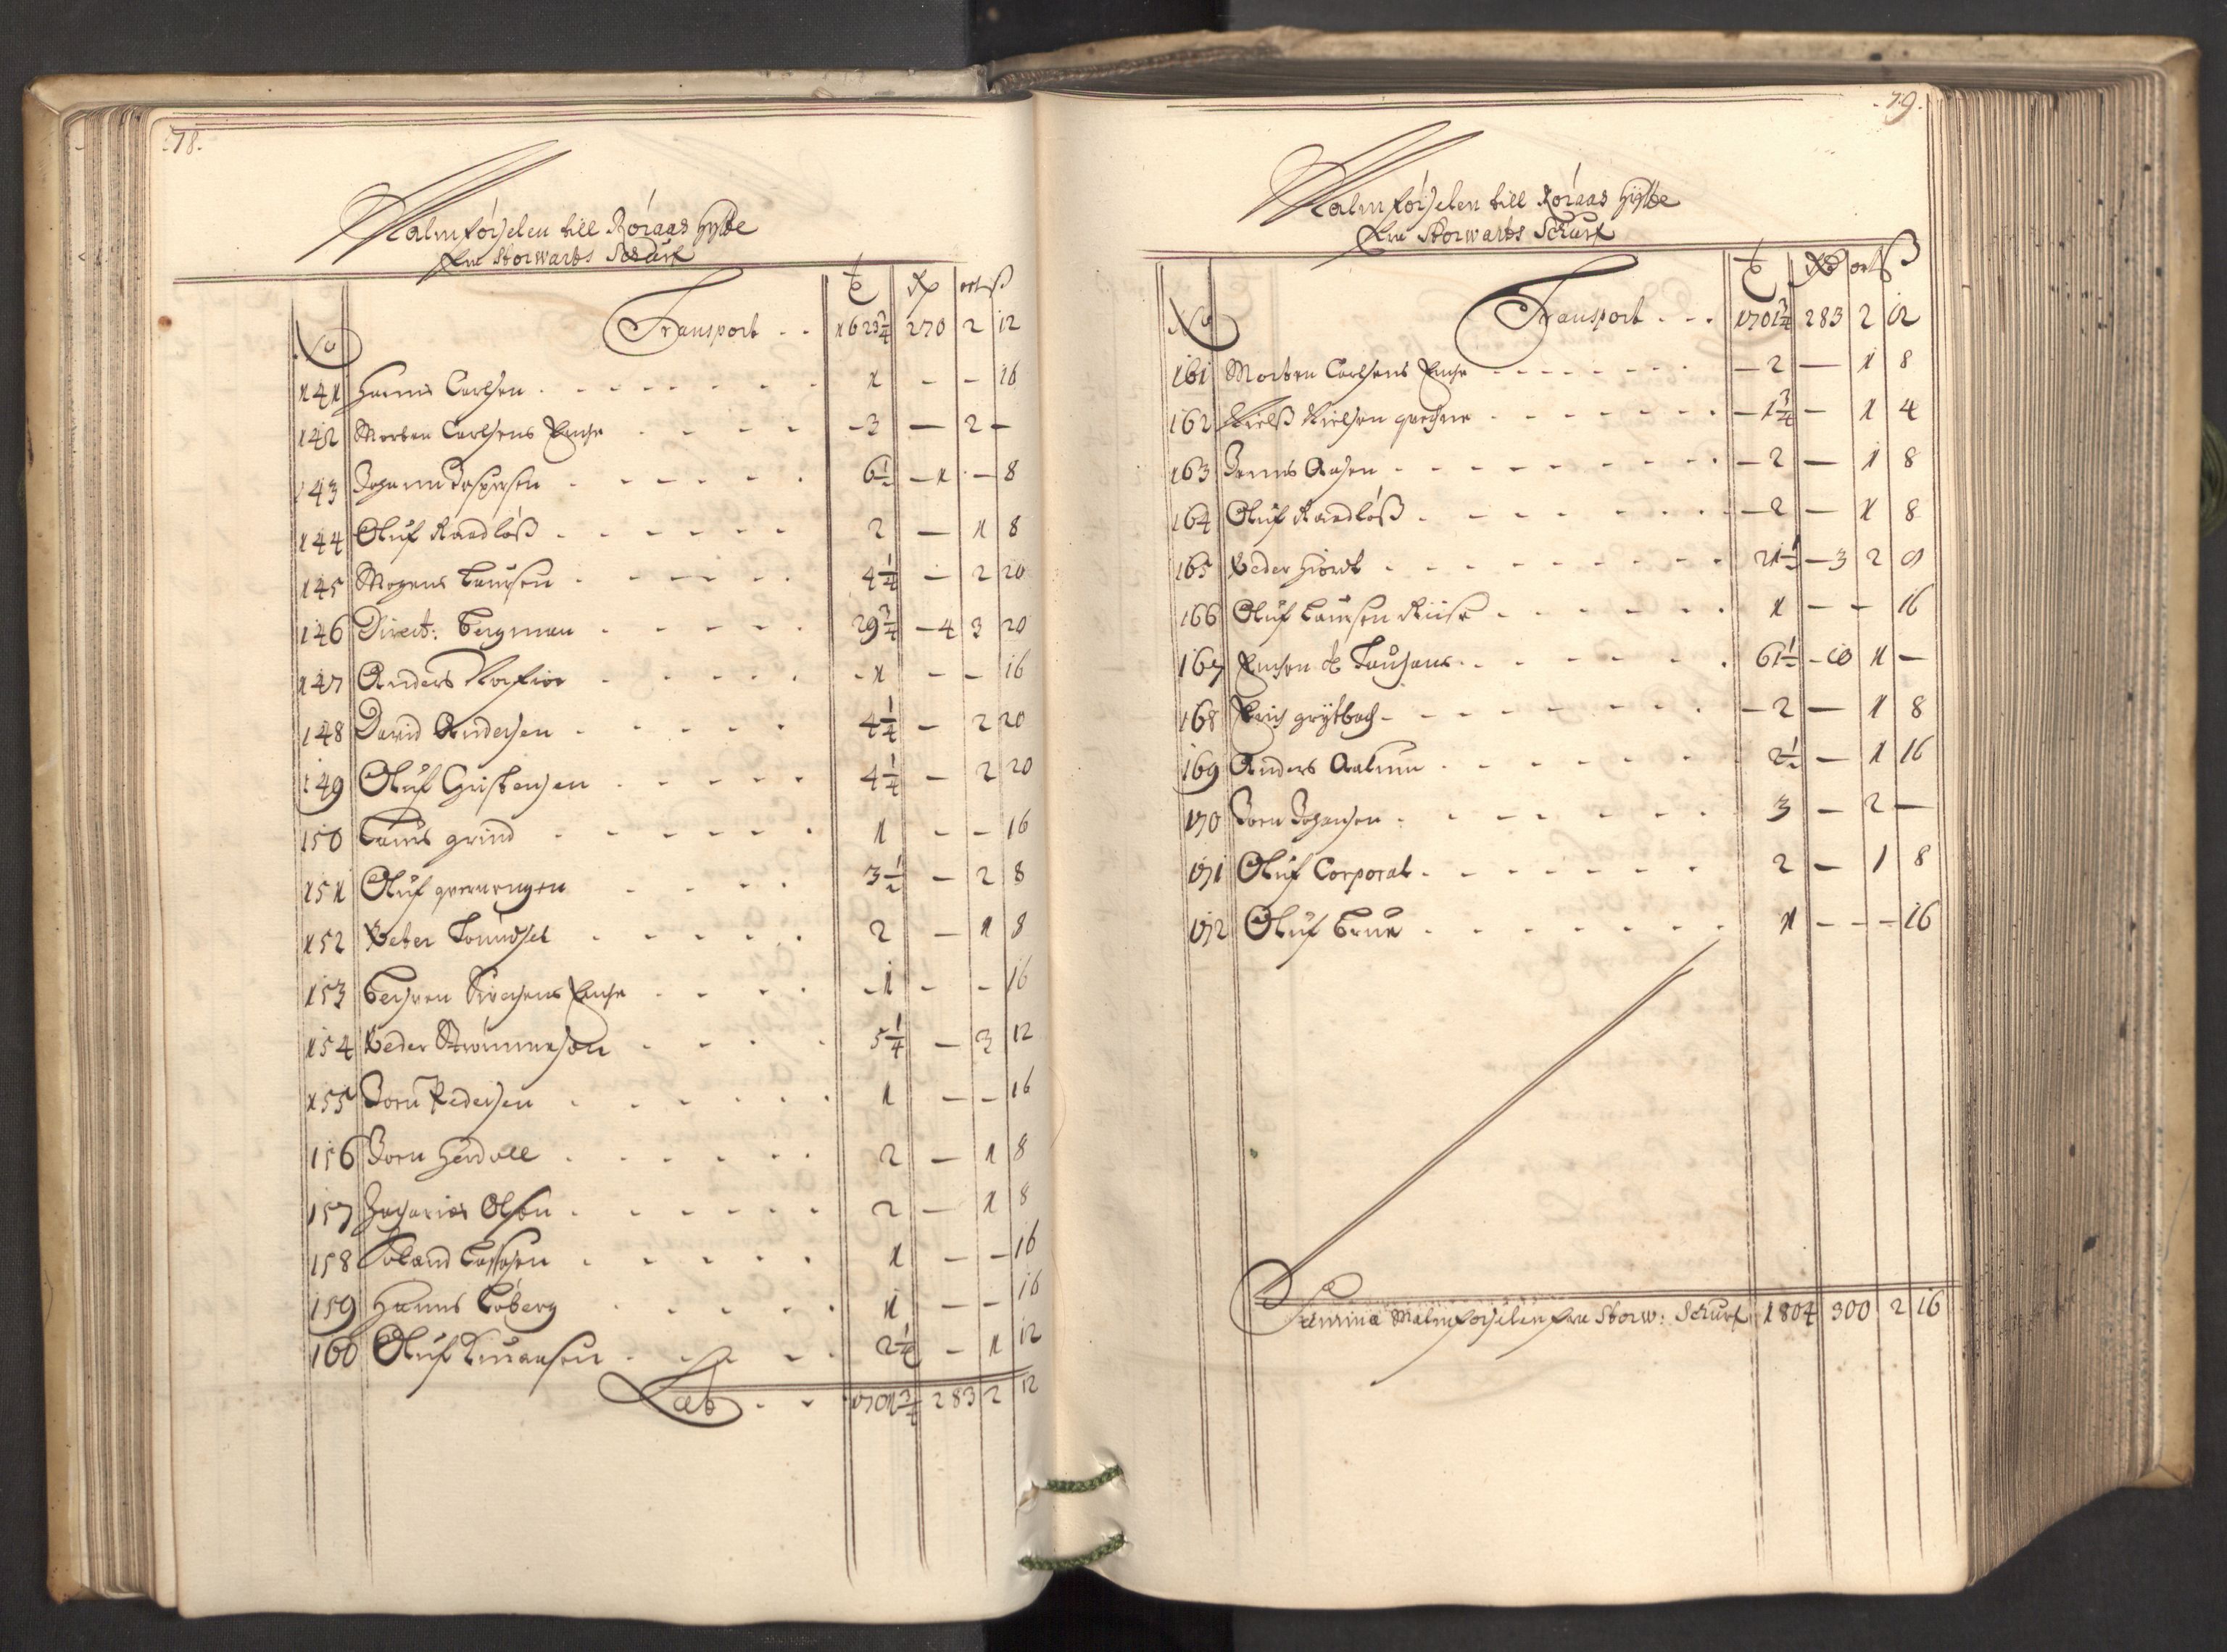 78.
Malmførselen till Røraas Hytte
fra Storwarts Schurf
No Transport - - 1623¾ 270 2 12
141 Hanns Carlsen - - - - - - - 1 - - 16
142 Morten Carlsens Enche - - - - 3 - 2 -
143 Johann Jespersen - - - - - 6½ - 1 - 8
144 Oluf Raadløß - - - - - - 2 - 1 8
145 Mogens Laursen - - - - - 4¼ - 2 20
146 Direct: Bergman - - - - - 29¾ - 4 3 20
147 Anders - - - - - 1 - - 16
148 David Andersen - - - - - 4¼ - 2 20
149 Oluf Christensen - - - - 4¼ - 2 20
150 Laurs grind - - - - - - 1 - - 16
151 Oluf - - - - 3½ - 2 8
152 Peter - - - - - 2 - 1 8
153 Enche - - - - 1 - - 16
154 Peder - - - - 5¼ - 3 12
155 Jorn Pedersen - - - - - - 1 - - 16
156 Jorn - - - - - - 2 - 1 8
157 Zacharias Olsen - - - - - - 2 - 1 8
158 - - - - - 1 - - 16
159 Hanns Løberg - - - - - 1 - - 16
160 Oluf - - - - 2¼ - 1 12
Lat - - 1701¾ 283 2 12
79.
Malmførselen till Røraas Hytte
fra Storwarts Schurf
No Transport - - - 1701¾ 283 2 12
161 Morten Carlsens Enche - - - - - - - 2 - 1 8
162 Nielß Nielsen - - - - - - 1¾ - 1 4
163 Aasen - - - - - - - - - 2 - 1 8
164 Oluf Raadløß - - - - - - - - 2 - 1 8
165 Peder Hiort - - - - - - - - 21½ - 3 2 8
166 Oluf Laursen Riise - - - - - - 1 - - 16
167 - - - - - - - 61½ - 10 1 -
168 Erich grytbach - - - - - - - - 2 - 1 8
169 Anders Aalmm - - - - - - - 2½ - 1 16
170 Jorn Johansen - - - - - - - 3 - 2 -
171 Oluf Corporal - - - - - - - 2 - 1 8
172 Oluf - - - - - - - 1 - - - 16
Summa Malmførselen fra Storw: Schurf 1804 300 2 16